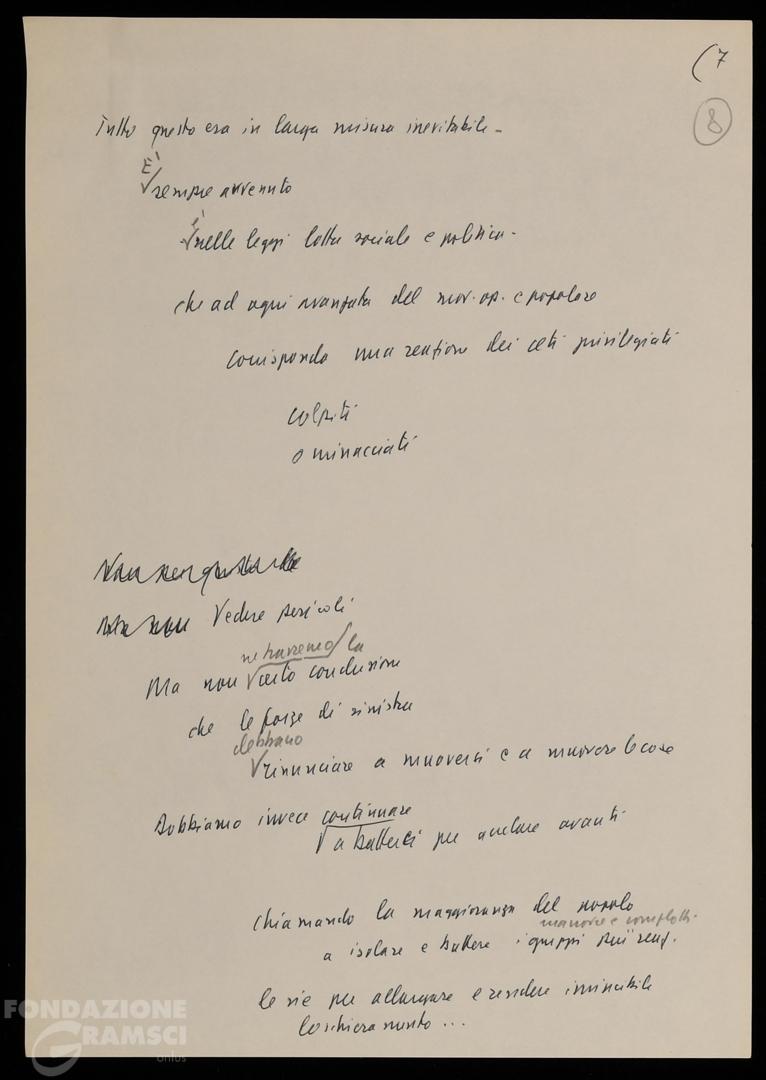 (7
8
Tutto questo era in larga misura inevitabile -
È
sempre avvenuto
è
nelle leggi lotta sociale e politica -
che ad ogni avanzata del mov. op. e popolare
corrisponda una reazione dei ceti privilegiati
colpiti
o minacciati
Vedere pericoli
ne trarremo la
Ma non certo conclusione
che le forze di sinistra
debbano
rinunciare a muoversi e a muovere le cose
Dobbiamo invece continuare
a batterci per andare avanti
chiamando la maggioranza del popolo
manovre e complotti.
a isolare e battere i gruppi più reaz.
le vie per allargare e rendere invincibile
lo schieramento ...
FONDAZIONE
GRAMSCI
onlus